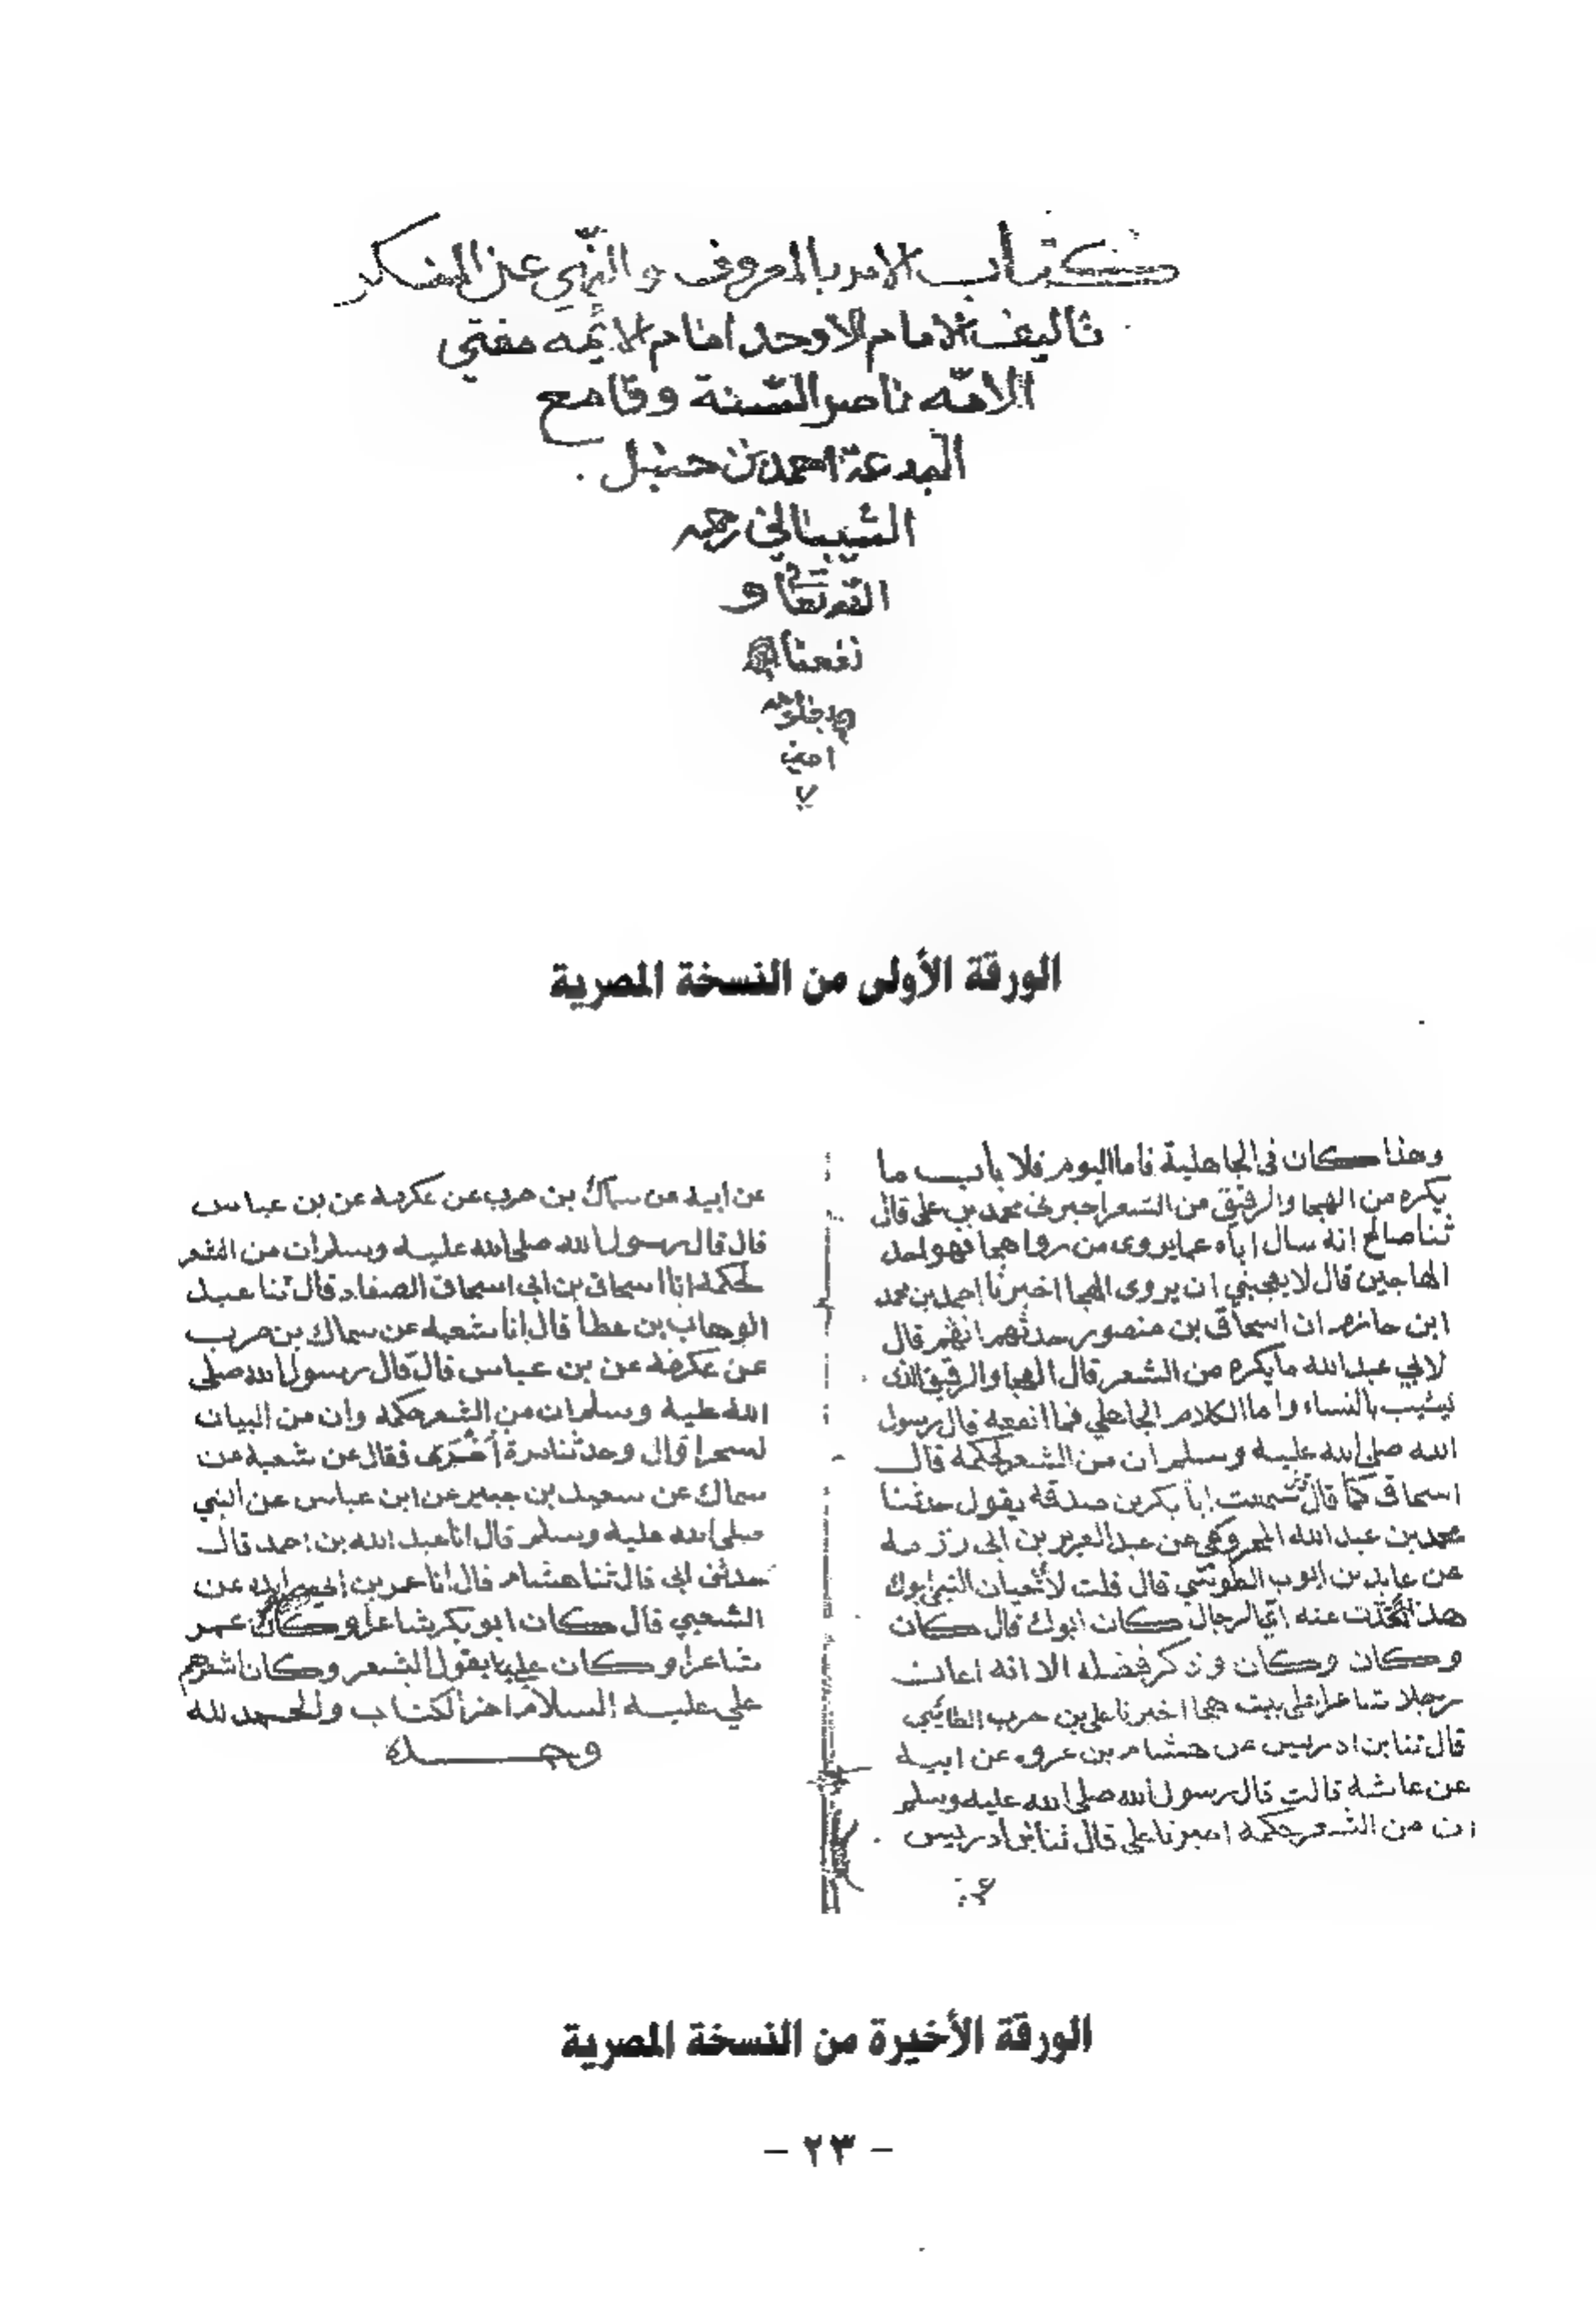 كتاب الامر بالمعروف والنّهي عن المنكر
تاليف الامام الاوحد امام الائمه مفتي
الامّه ناصر السّنة وقامع
البدعة احمد بن حنبل
الشيباني رحمه
الله تعا و
نفعنا
امين
الورقة الأولى من النسخة المصرية
وهذا كان في الجاهلية فاما اليوم فلا باب ما
يكره من الهجا والرقيق من الشعر اخبرني محمد بن علي قال
ثنا صالح انه سال اباه عما يروى من روا هجا فهو احد
الهاجين قال لا يعجبني ان يروى الهجا اخبرنا احمد بن محمد
ابن حازم ان اسحاق بن منصور حدثهم انهم قال
لابي عبد الله ما يكره من الشعر قال الهجا والرقيق الذى
يشبب بالنساء واما الكلام الجاهلي فما انفعه قال رسول
الله صلى الله عليه وسلم ان من الشعر لحكمة قال
اسحاق كما قال سمعت ابا بكر بن صدقة يقول حدثنا
محمد بن عبد الله المخرومي عن عبد العزيز بن ابى رزمه
عن عابد بن ايوب الطوسي قال قلت لا
هذا عنه اي الرجال كان ابوك قال كان
وكان وكان وذكر فضله الا انه اعان
رجلا شاعرا على بيت هجا اخبرنا علي بن حرب الطائي
قال ثنا بن ادريس عن هشام بن عروه عن ابيه
عن عائشة قالت قال رسول الله صلى الله عليه وسلم
ان من الشعر حكمه اخبرنا علي قال ثنا بن ادريس
عن ابيه عن سماك بن حرب عن عكرمة عن بن عباس
قال قال رسول الله صلى الله عليه وسلم ان من الشعر
لحكمة انا اسحاق بن ابى اسحاق الصفار قال ثنا عبد
الوهاب بن عطا قال انا شعبه عن سماك بن حرب
عن عكرمة عن بن عباس قال قال رسول الله صلى
الله عليه وسلم ان من الشعر حكمة وان من البيان
لسحرا قال وحدثنا مرة أخرى فقال عن شعبة عن
سماك عن سعيد بن جبير عن ابن عباس عن النبي
صلى الله عليه وسلم قال انا عبد الله بن احمد قال
حدثنى ابى قال ثنا هشام قال انا عمر بن عن
الشعبي قال كان ابو بكر شاعرا وكان عمر
شاعرا وكان علي يقول الشعر وكان اشعرهم
علي عليه السلام اخر الكتاب والحمد لله
وحده
الورقة الأخيرة من النسخة المصرية
- ٢٣ -